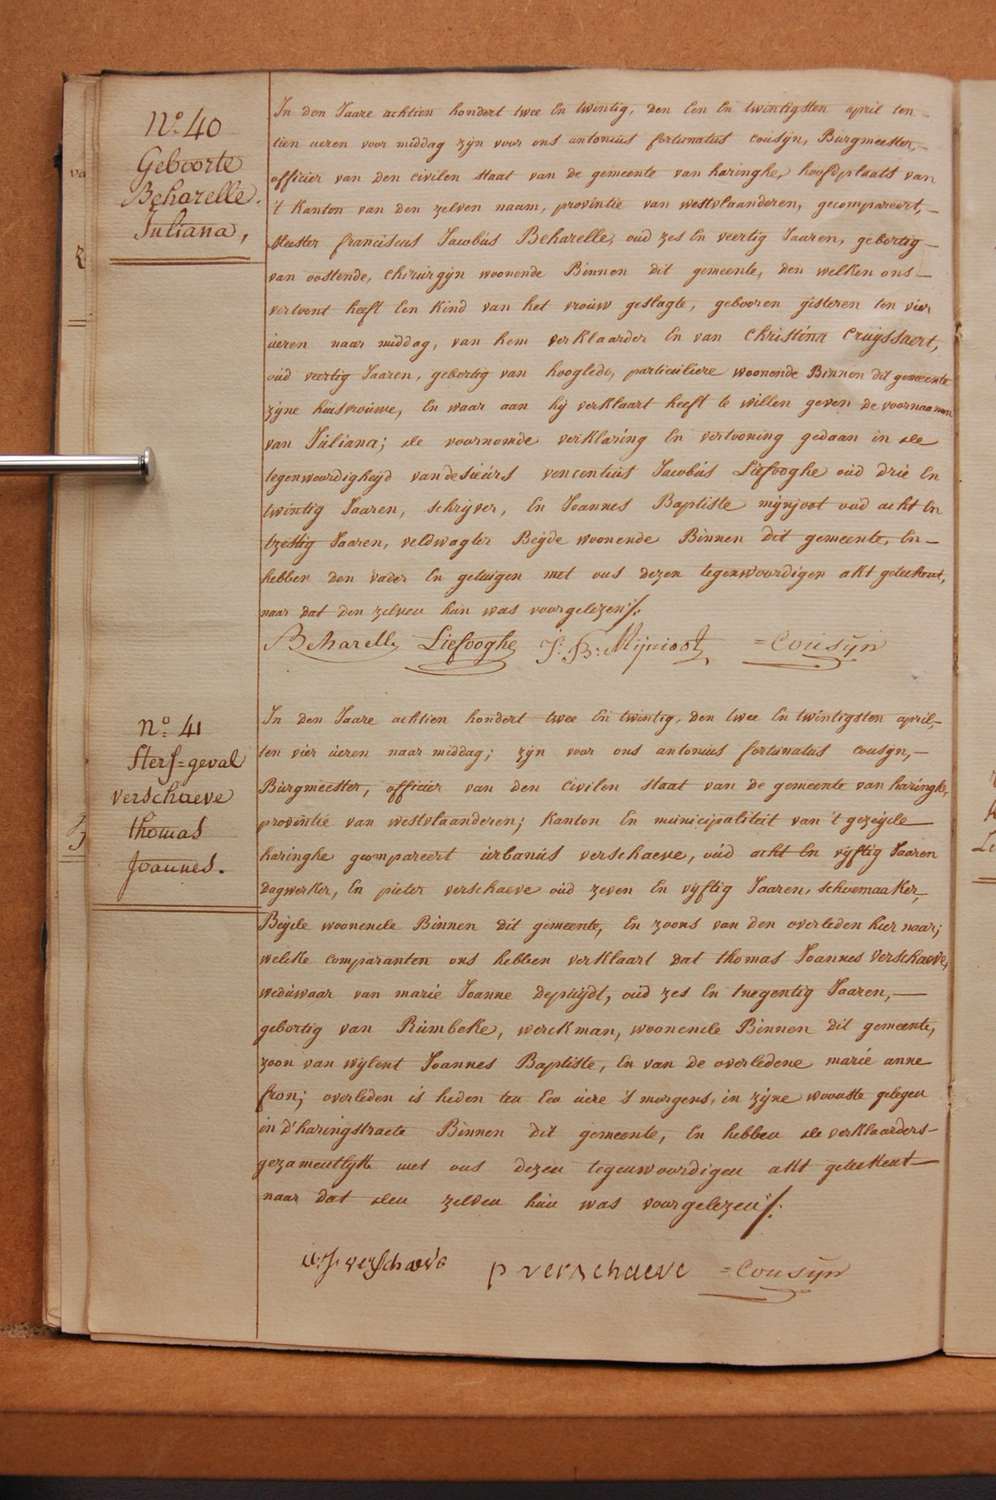 N.o 40
Geboorte
Beharelle.
Juliana,
In den Jaare achtien hondert twee En twintig, den Een En twintigsten april ten –
tien ueren voor middag zijn voor ons antonius fortunatus cousijn, Burgmeester, –
officier van den civilen staat van de gemeente van haringhe, hoofdplaats van
't kanton van den zelven naam, provintie van westvlaanderen, gecompareert, –
Meester franciscus Jacobus Beharelle, oud zes En veertig Jaaren, gebortig –
van oostende, chirurgijn woonende Binnen dit gemeente, den welken ons –
vertoont heeft Een kind van het vrouw geslagte, gebooren gisteren ten vier
ueren naar middag, van hem verklaarder En van Christina Cruijssaert,
oud veertig Jaaren, gebortig van hooglede, particuliere woonende Binnen dit gemeente
zijne huisvrouwe, En waar aan hij verklaart heeft te willen geven de voornaamen
van Juliana; de voornomde verklaring En vertooning gedaan in de
tegenwoordigheijd van de sieurs vencentius Jacobus Liefooghe oud drie En
twintig Jaaren, schrijver, En Joannes Baptiste mijnjoot oud acht En
tzestig Jaaren, veldwagter Beijde woonende Binnen dit gemeente, En –
hebben den vader En getuigen met ons dezen tegenwoordigen akt geteekent,
naar dat den zelven hun was voorgelezen ./.
Beharelle Liefooghe J: B: Mijnioot = Cousijn
N.o 41
Sterf=geval
verschaeve
thomas
Joannes.
In den Jaare achtien hondert twee En twintig, den twee En twintigsten april, –
ten vier ueren naar middag; zijn voor ons antonius fortunatus cousijn, –
Burgmeester, officier van den civilen staat van de gemeente van haringhe,
provintie van westvlaanderen; kanton En municipaliteit van 't gezeijde –
haringhe gecompareert urbanus verschaeve, oud acht En vijftig Jaaren
Dagwerker, En pieter verschaeve oud zeven En vijftig Jaaren, schoemaaker,
Beijde woonende Binnen dit gemeente, En zoons van den overleden hier naar;
welcke comparanten ons hebben verklaart dat thomas Joannes verschaeve,
weduwaar van marie Joanne Depuijdt, oud zes En tnegentig Jaaren, –
gebortig van Rumbeke, werckman, woonende Binnen dit gemeente,
zoon van wijlent Joannes Baptiste, En van de overledene marie anne
fron; overleden is heden ten Een uere 's morgens, in zijne woonste gelegen
in d'haringstraete Binnen dit gemeente, En hebben de verklaarders –
gezamentlijk met ons dezen tegenwoordigen akt geteekent –
naar dat den zelven hun was voorgelezen ./.
u: f: verschaeve p verschaeve = Cousijn